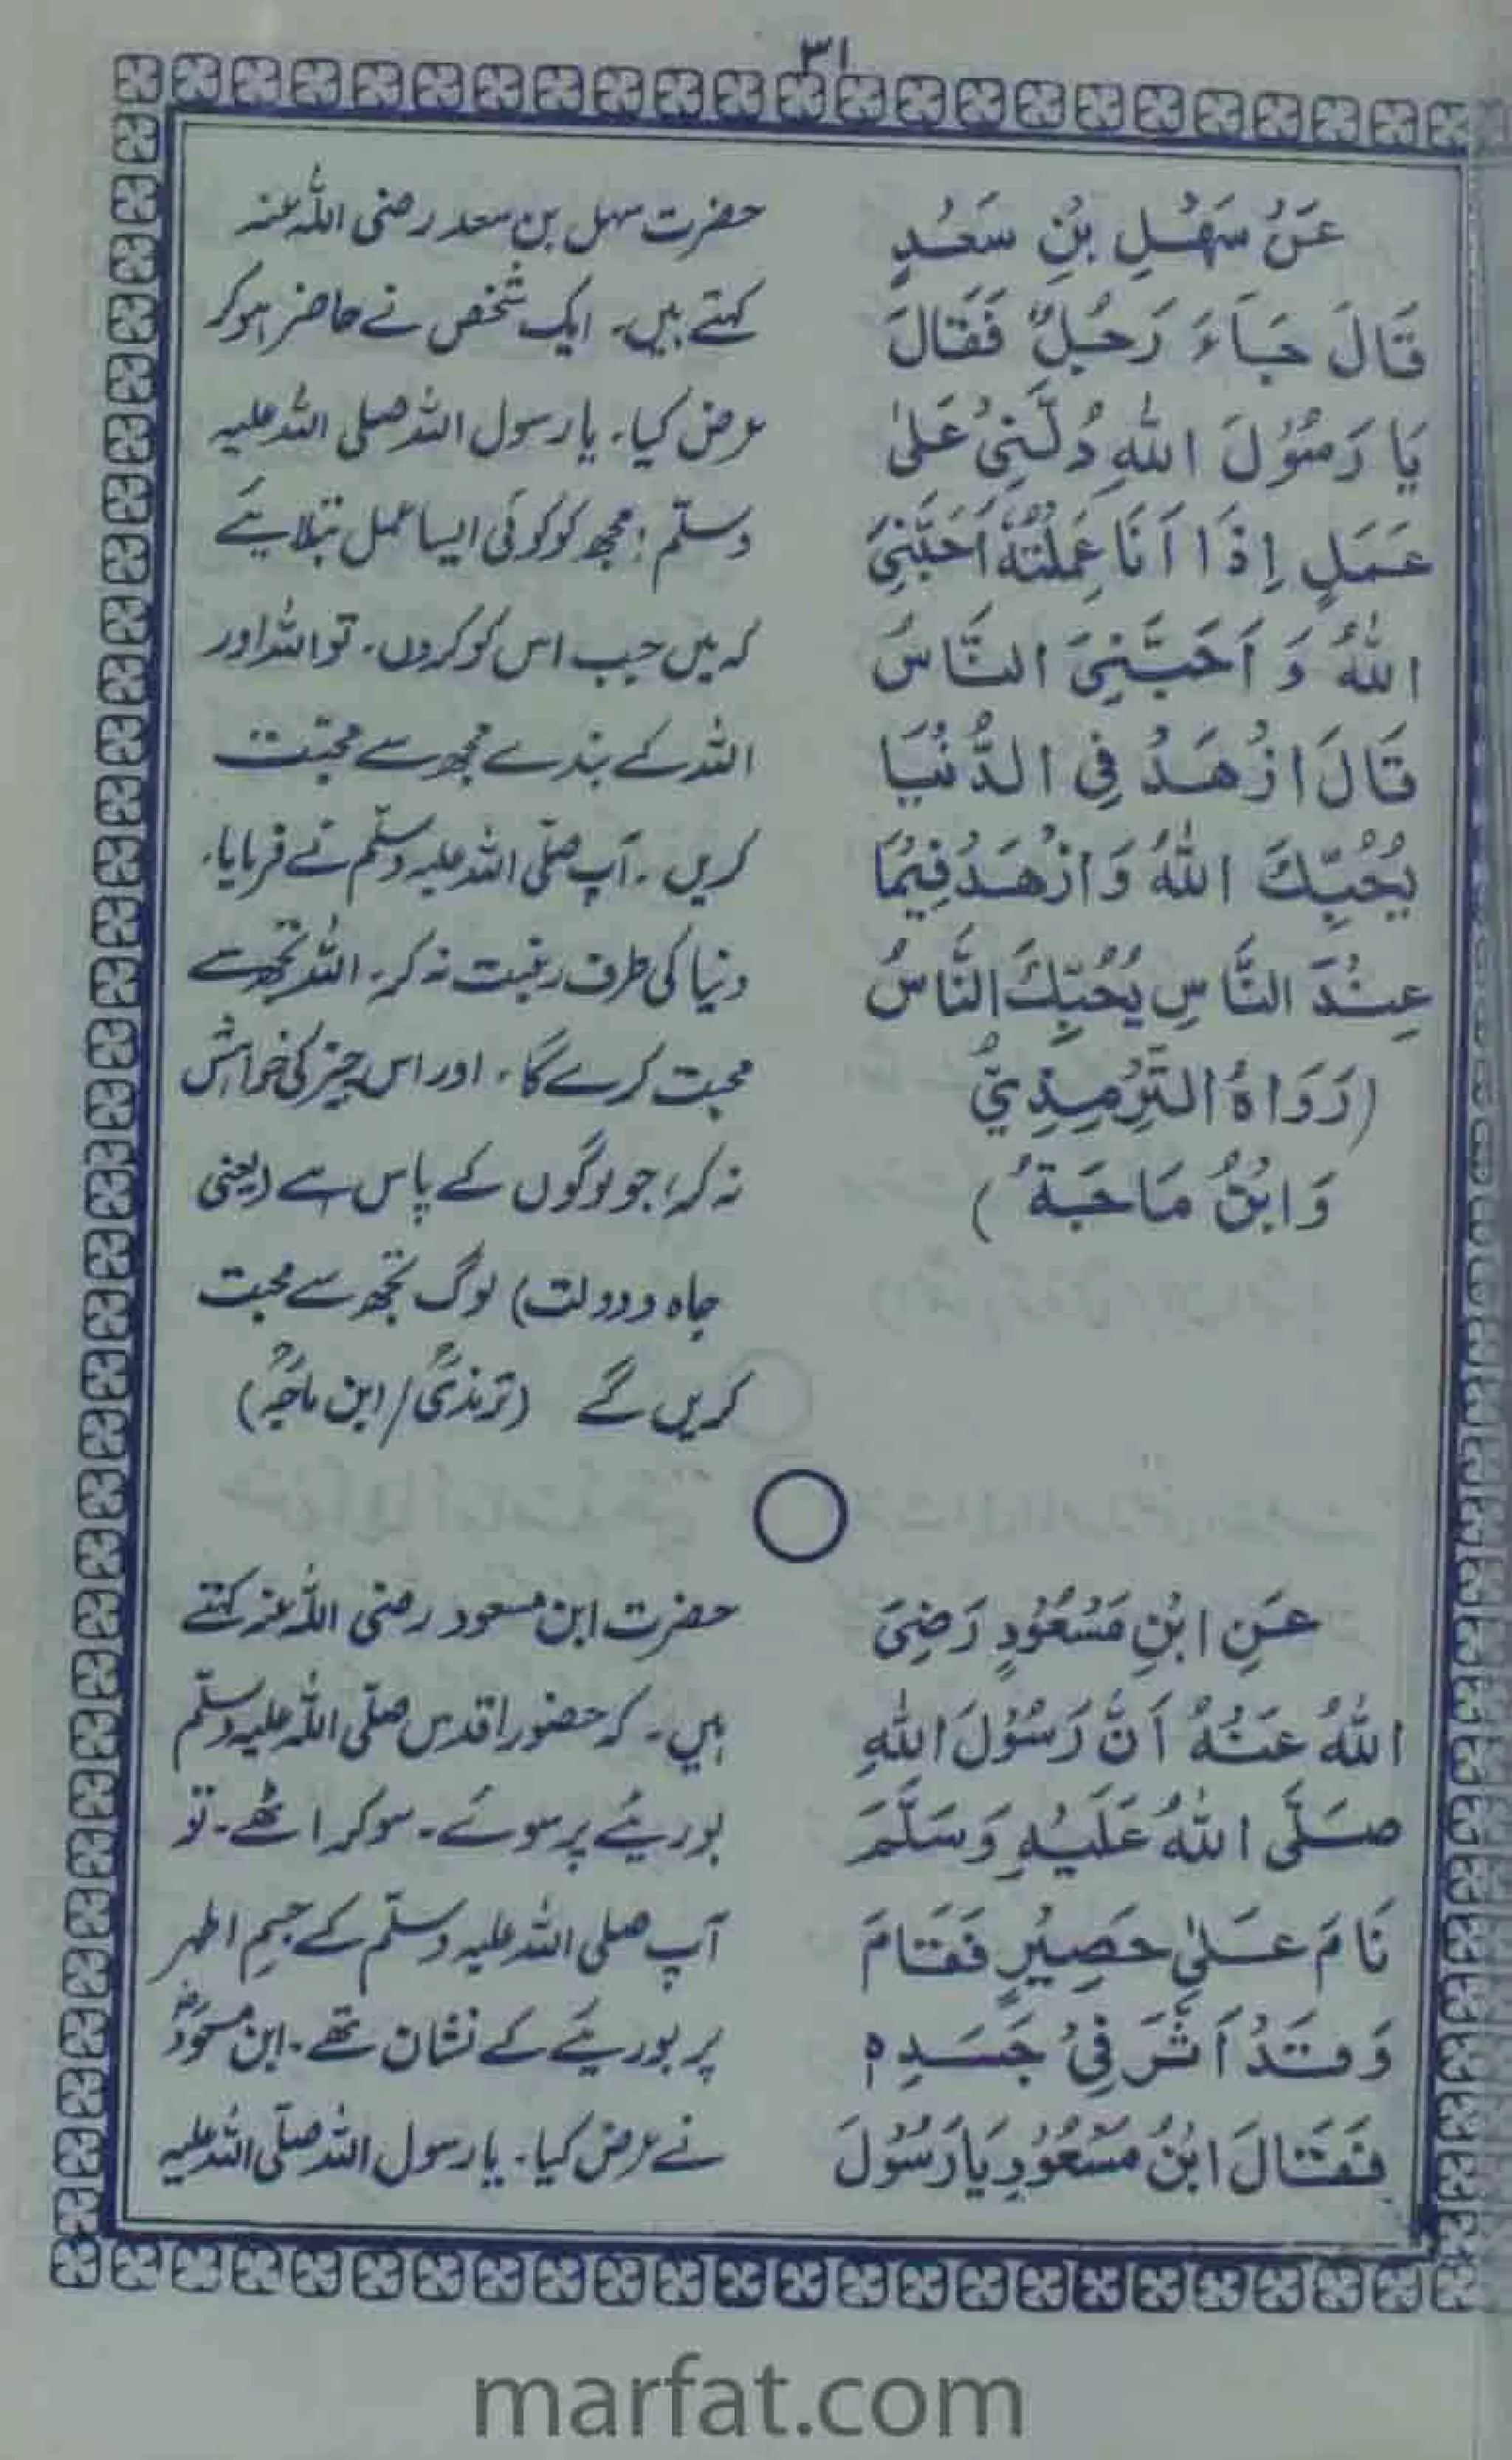 ۳۱
عَنْ سَهْلِ بْنِ سَعْدٍ
قَالَ جَآءَ رَجُلٌ فَقَالَ
يَا رَسُوْلَ اللهِ دُلَّنِيْ عَلٰى
عَمَلٍ اِذَا اَنَا عَمِلْتُهٗ اَحَبَّنِيَ
اللهُ وَ اَحَبَّنِيَ النَّاسُ
قَالَ ازْهَدْ فِي الدُّنْيَا
يُحِبُّكَ اللهُ وَازْهَدْ فِيْمَا
عِنْدَ النَّاسِ يُحِبُّكَ النَّاسُ
(رَوَاهُ التِّرْمِذِيُّ
وَابْنُ مَاجَةَ)
حضرت سہل بن سعد رضی اللہ عنہ
کہتے ہیں۔ ایک شخص نے حاضر ہو کر
عرض کیا۔ یا رسول اللہ صلی اللہ علیہ
وسلّم! مجھ کو کوئی ایسا عمل بتلائیے
کہ میں جب اس کو کروں۔ تو اللہ اور
اللہ کے بندے مجھ سے محبّت
کریں۔ آپ صلّی اللہ علیہ وسلّم نے فرمایا۔
دنیا کی طرف رغبت نہ کر۔ اللہ تجھ سے
محبت کرے گا۔ اور اس چیز کی خواہش
نہ کر، جو لوگوں کے پاس ہے (یعنی
جاہ و دولت) لوگ تجھ سے محبت
کریں گے (ترمذیؒ/ابن ماجہؒ)
عَنِ ابْنِ مَسْعُوْدٍ رَضِيَ
اللهُ عَنْهُ اَنَّ رَسُوْلَ اللهِ
صَلَّى اللهُ عَلَيْهِ وَسَلَّمَ
نَامَ عَلٰى حَصِيْرٍ فَقَامَ
وَقَدْ اَثَّرَ فِيْ جَسَدِهٖ
فَقَالَ ابْنُ مَسْعُوْدٍ يَا رَسُوْلَ
حضرت ابن مسعود رضی اللہ عنہ کہتے
ہیں۔ کہ حضور اقدس صلّی اللہ علیہ وسلّم
بوریئے پر سوئے۔ سو کر اٹھے۔ تو
آپ صلی اللہ علیہ وسلّم کے جسمِ اطہر
پر بوریئے کے نشان تھے۔ ابن مسعودؓ
نے عرض کیا۔ یا رسول اللہ صلّی اللہ علیہ
marfat.com